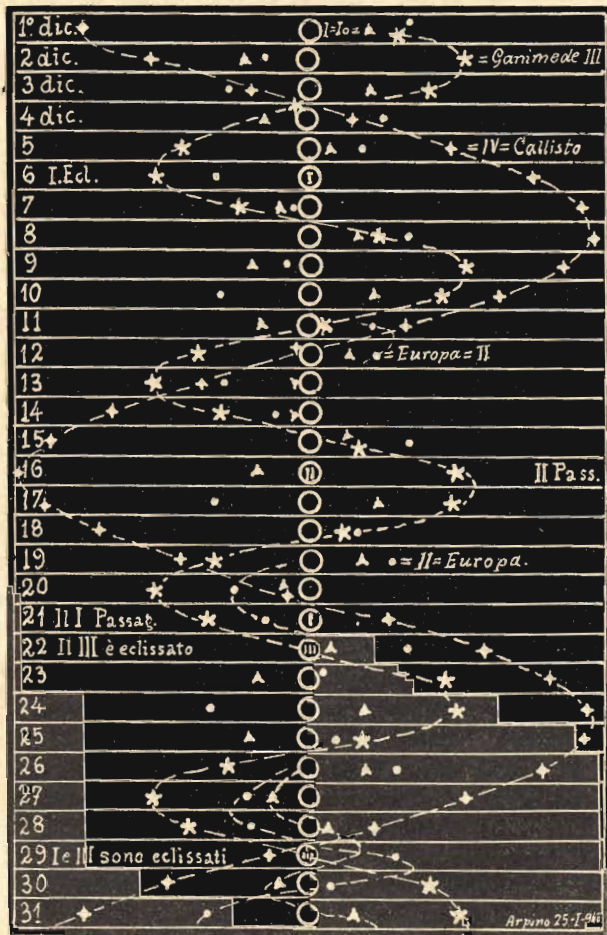 1º dic. I=Io=
2 dic. =Ganimede III
3 dic.
4 dic.
5 =IV=Callisto
6 I.Ecl. I
7
8
9
10
11
12 =Europa=II
13
14
15
16 II II Pass.
17
18
19 =II=Europa.
20
21 Il I Passag. I
22 Il III è eclissato III
23
24
25
26
27
28
29 I e III sono eclissati
30
31 Arpino 25-I-940